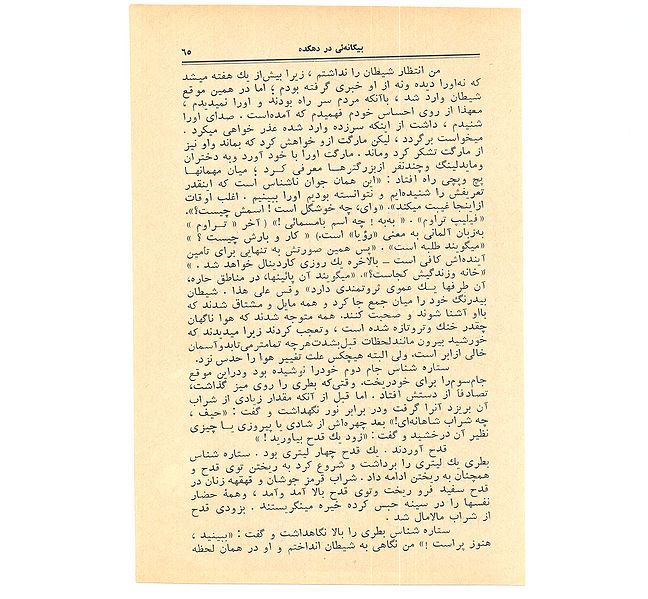 بیگانه‌ئی در دهکده
٦٥
من انتظار شیطان را نداشتم ، زیرا بیش‌از یك هفته میشد
که نه‌اورا دیده ونه از او خبری گرفته بودم ؛ اما در همین موقع
شیطان وارد شد ، باآنکه مردم سر راه بودند و اورا نمیدیدم ،
معهذا از روی احساس خودم فهمیدم که آمده‌است . صدای اورا
شنیدم ، داشت از اینکه سرزده وارد شده عذر خواهی میکرد .
میخواست برگردد ، لیکن مارگت ازو خواهش کرد که بماند واو نیز
از مارگت تشکر کرد وماند . مارگت اورا با خود آورد وبه دختران
ومایدلینگ وچندنفر ازبزرگترهـا معرفی کرد ؛ میان مهمانهـا
پچ وپچی راه افتاد : «این همان جوان ناشناس است که اینقدر
تعریفش را شنیده‌ایم و نتوانسته بودیم اورا ببینیم . اغلب اوقات
ازاینجا غیبت میکند». «وای، چه خوشگل است ! اسمش چیست؟».
«فیلیپ تراوم» . « به‌به ! چه اسم بامسمائی !» (آخر « تـراوم »
به‌زبان آلمانی به معنی «رؤیا» است.) « کار و بارش چیست ؟ »
«میگویند طلبه است» . «پس همین صورتش به تنهایی برای تامین
آینده‌اش کافی است ــ بالاخره یك روزی کاردینال خواهد شد . »
«خانه وزندگیش کجاست؟». «میگویند آن پائینها، در مناطق حاره،
آن طرفها یـك عموی ثروتمندی دارد» وقس علی هذا . شیطان
بیدرنگ خود را میان جمع جا کرد و همه مایل و مشتاق شدند که
بااو آشنا شوند و صحبت کنند. همه متوجه شدند که هوا ناگهان
چقدر خنك وتروتازه شده است ، وتعجب کردند زیرا میدیدند که
خورشید بیرون مانندلحظات قبل‌بشدت‌هرچه تمامترمی‌تابدوآسمان
خالی ازابر است. ولی البته هیچکس علت تغییر هوا را حدس نزد.
ستاره شناس جام دوم خودرا نوشیده بود ودراین موقع
جام‌سوم‌را برای خودریخت. وقتی‌که بطری را روی میز گذاشت،
تصادفاً از دستش افتاد . اما قبل از آنکه مقدار زیادی از شراب
آن بریزد آنرا گرفت ودر برابر نور نگهداشت و گفت : «حیف ،
چه شراب شاهانه‌ای!» بعد چهره‌اش از شادی یا پیروزی یـا چیزی
نظیر آن درخشید و گفت : «زود یك قدح بیاورید ! »
قدح آوردند . یك قدح چهار لیتری بود . ستاره شناس
بطری یك لیتری را برداشت و شروع کرد به ریختن توی قدح و
همچنان به ریختن ادامه داد . شراب قرمز جوشان و قهقهه زنان در
قدح سفید فرو ریخت وتوی قدح بالا آمد وآمد ، وهمهٔ حضار
نفسهـا را در سینه حبس کرده خیره مینگریستند . بزودی قدح
از شراب مالامال شد .
ستاره شناس بطری را بالا نگاهداشت و گفت : «ببینید ،
هنوز پراست !» من نگاهی به شیطان انداختم و او در همان لحظه